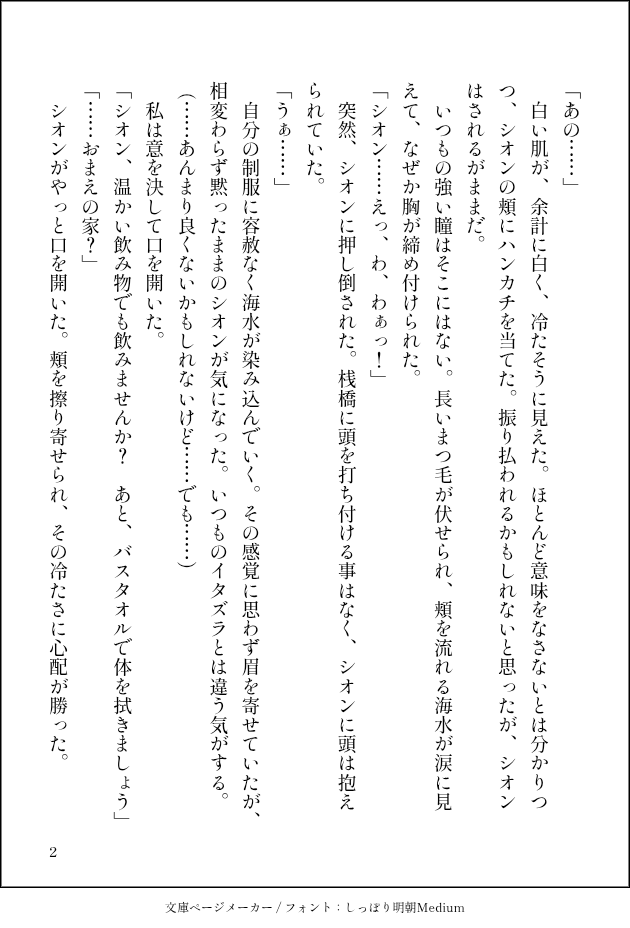 「あの……」
　白い肌が、余計に白く、冷たそうに見えた。ほとんど意味をなさないとは分かりつ
つ、シオンの頬にハンカチを当てた。振り払われるかもしれないと思ったが、シオン
はされるがままだ。
　いつもの強い瞳はそこにはない。長いまつ毛が伏せられ、頬を流れる海水が涙に見
えて、なぜか胸が締め付けられた。
「シオン……えっ、わ、わぁっ！」
　突然、シオンに押し倒された。桟橋に頭を打ち付ける事はなく、シオンに頭は抱え
られていた。
「うぁ……」
　自分の制服に容赦なく海水が染み込んでいく。その感覚に思わず眉を寄せていたが、
相変わらず黙ったままのシオンが気になった。いつものイタズラとは違う気がする。
（……あんまり良くないかもしれないけど……でも……）
　私は意を決して口を開いた。
「シオン、温かい飲み物でも飲みませんか？　あと、バスタオルで体を拭きましょう」
「……おまえの家？」
　シオンがやっと口を開いた。頬を擦り寄せられ、その冷たさに心配が勝った。
2
文庫ページメーカー / フォント：しっぽり明朝Medium